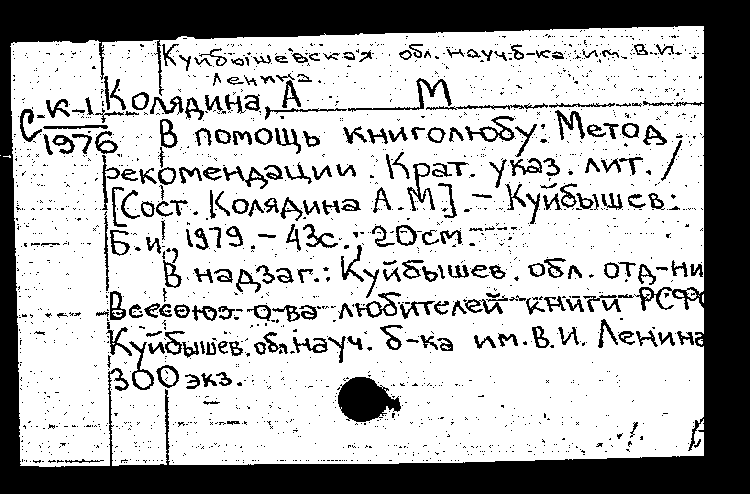 Куйбышевская обл. науч. б-ка им. В.И.
Ленина.
Колядина, А М
С-К-1
1976
В помощь книголюбу: Метод.
рекомендации. Крат. указ. лит. /
[Сост. Колядина А.М]. – Куйбышев:
Б.и., 1979. – 43с.; 20см.
В надзаг.: Куйбышев. обл. отд-ни
Всесоюз. о-ва любителей книги РСФС
Куйбышев. обл. науч. б-ка им. В.И. Ленина
300 экз.